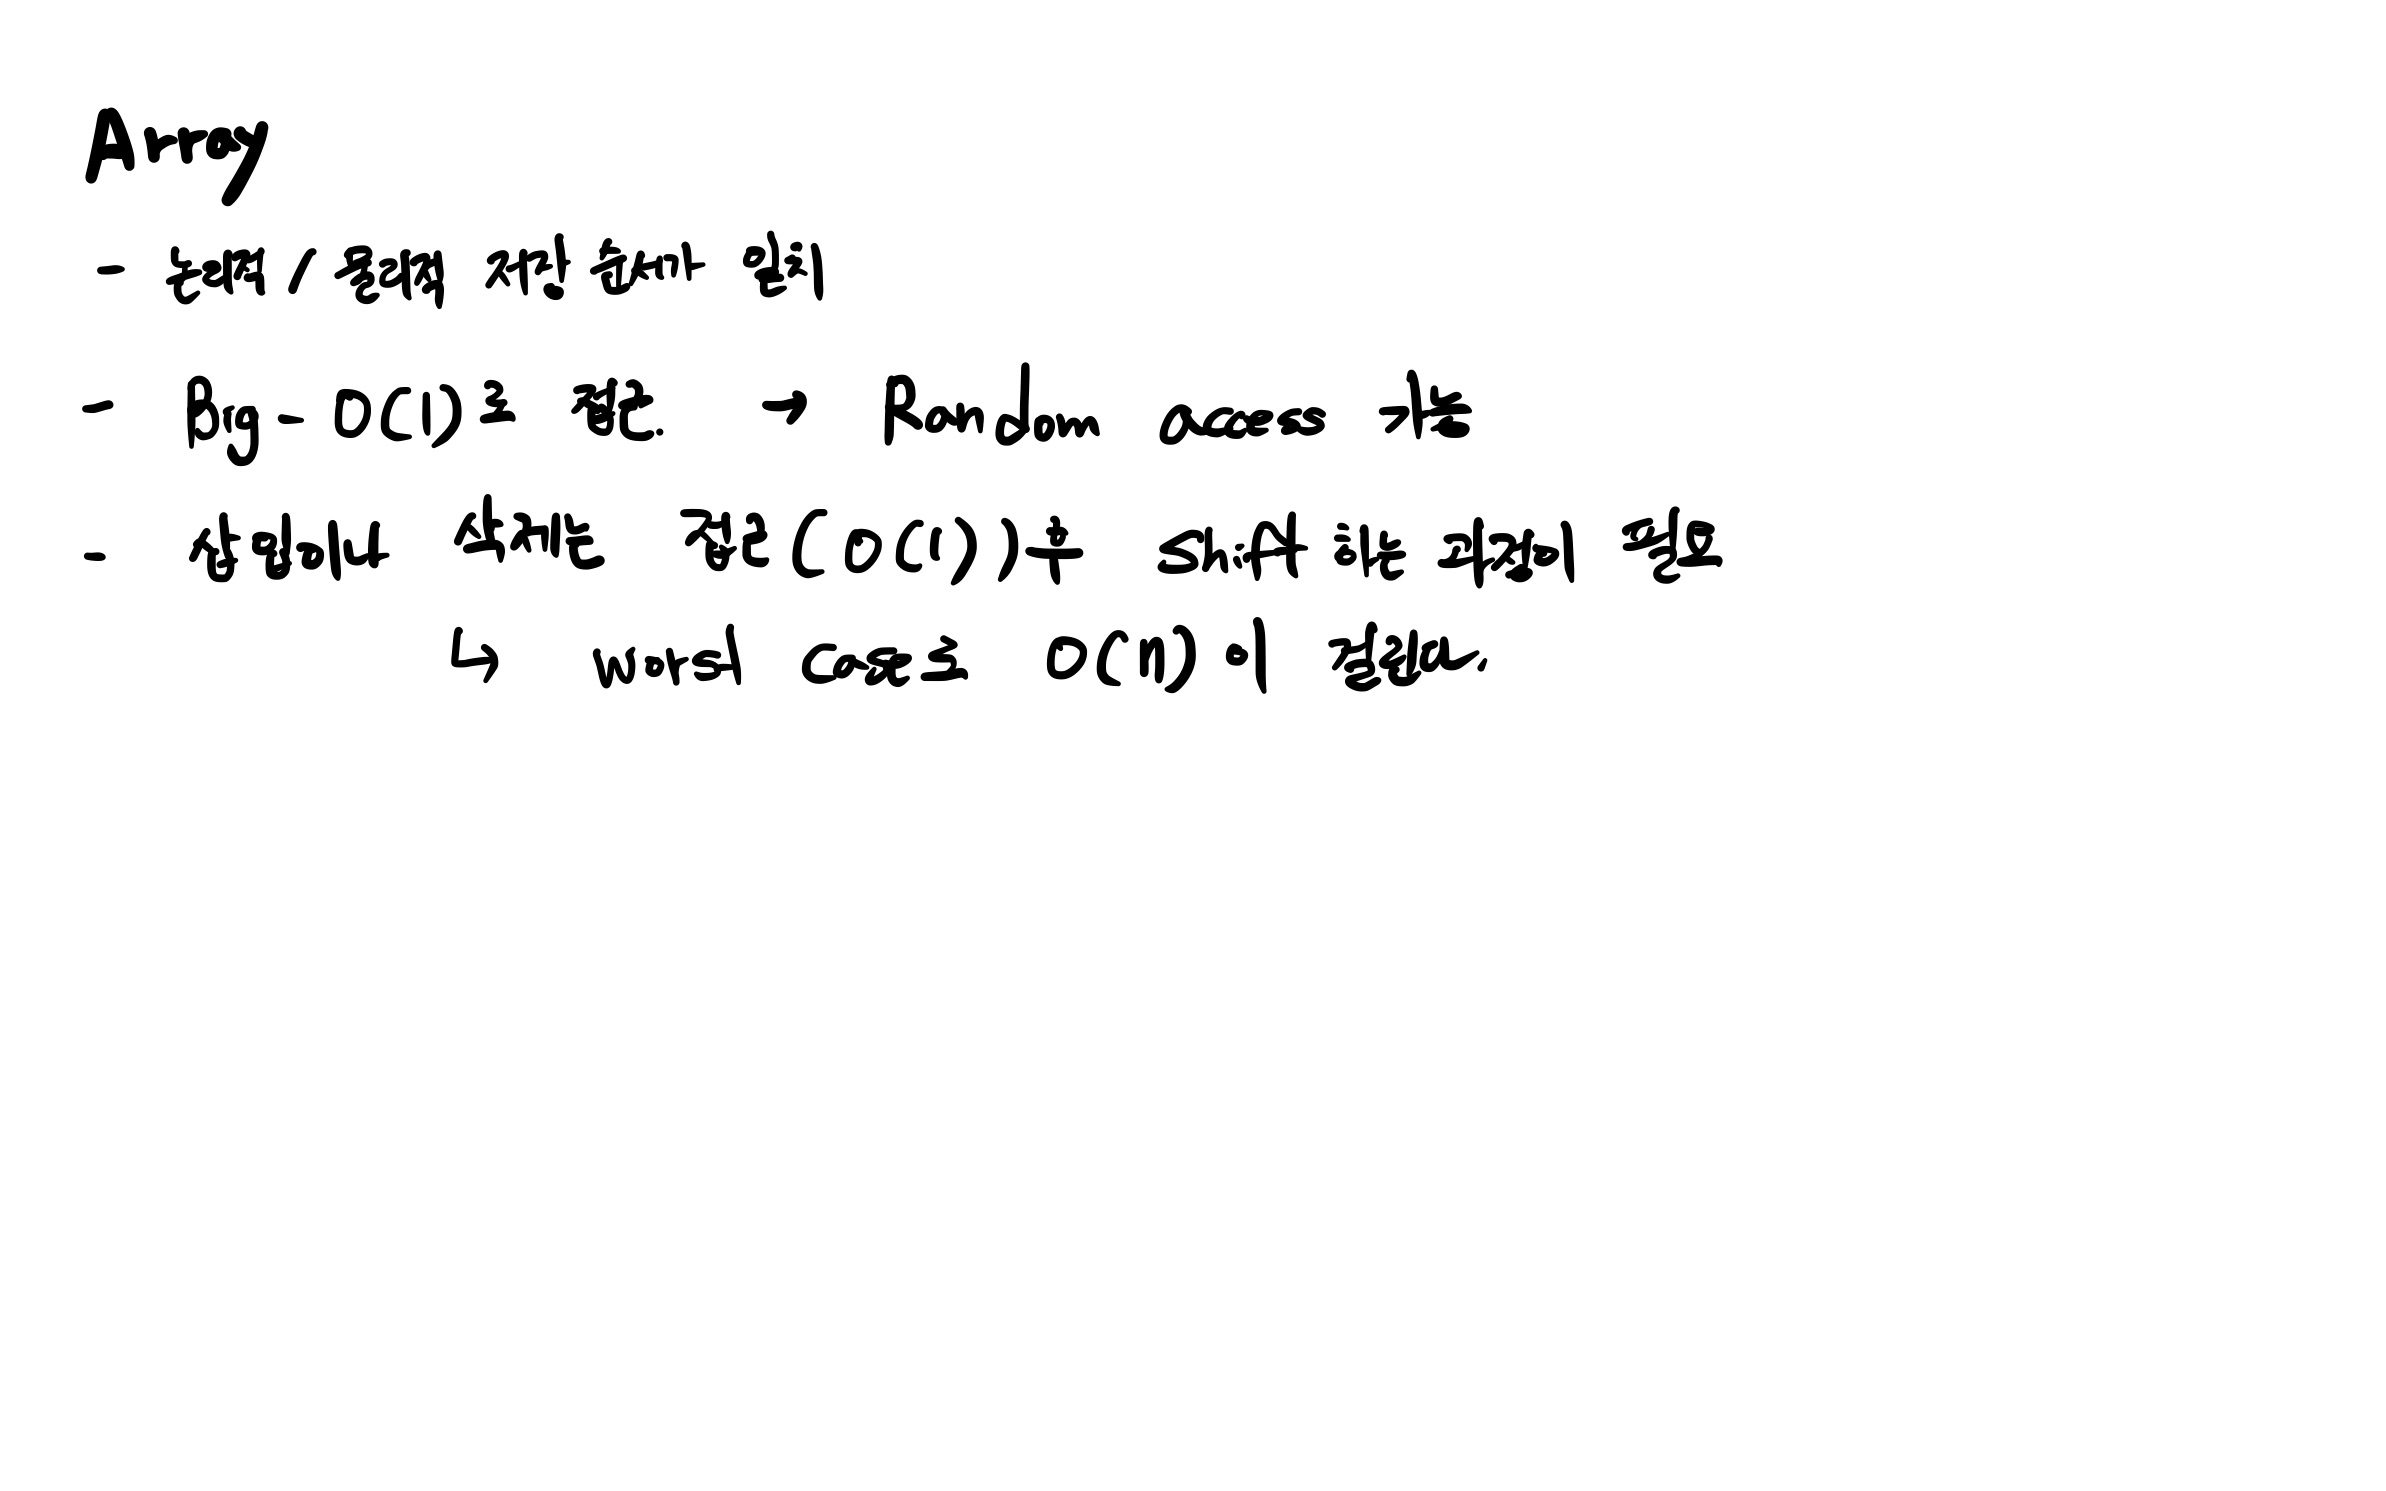 Array
- 논리적 / 물리적 저장 순서가 일치
- Big - O(1)로 접근. → Random access 가능
- 삽입이나 삭제는 접근(O(1)) 후 shift 하는 과정이 필요
↳ worst case로 O(n)이 걸린다.